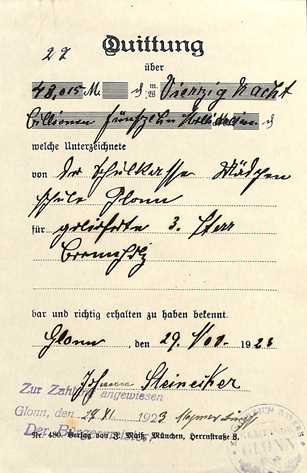 27
Quittung
über
48,015 M Vierzig Nacht
Billionen fünfzehn
welche Unterzeichnete
von der Schulkasse Mädchen
schule Glonn
für gelieferte 3 Ster
Brennholz
bar und richtig erhalten zu haben bekennt.
Glonn, den 29. Nov. 1923
Johann Steinecker
Zur Zahlung angewiesen
Glonn, den 29 XI 1923
Der Bürgermeister
Nr. 480. Verlag von J. Maiß, München, Herrnstraße 8.
GLONN